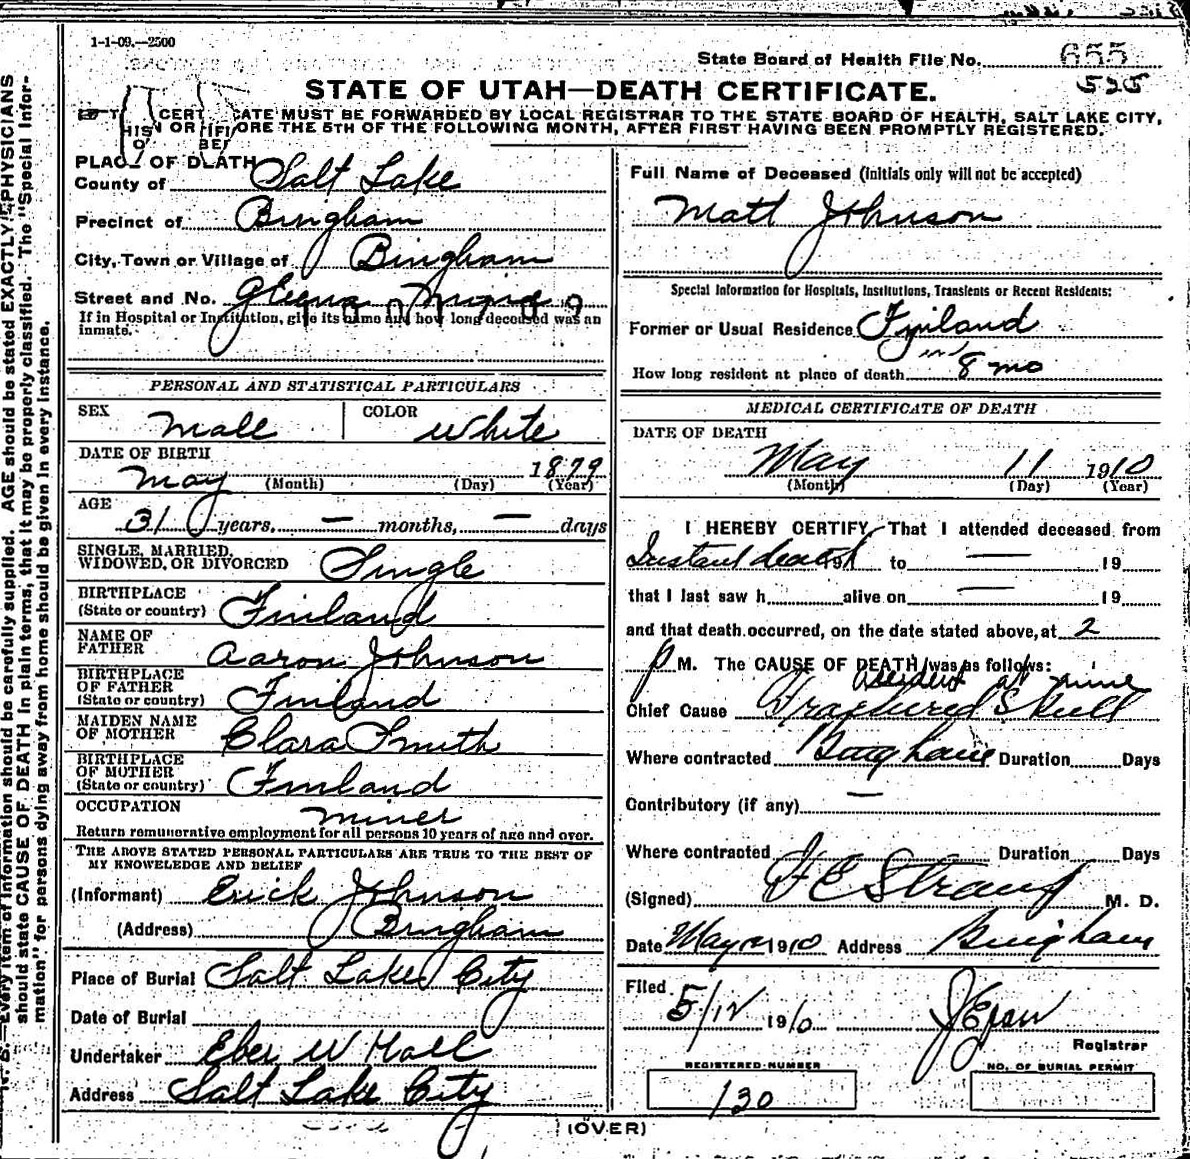 1-1-09.—2500
State Board of Health File No. 655
525
STATE OF UTAH—DEATH CERTIFICATE.
CERT CATE MUST BE FORWARDED BY LOCAL REGISTRAR TO THE STATE BOARD OF HEALTH, SALT LAKE CITY,
ORE THE 5TH OF THE FOLLOWING MONTH, AFTER FIRST HAVING BEEN PROMPTLY REGISTERED.
PLACE OF DEATH
County of Salt Lake
Precinct of Bingham
City, Town or Village of Bingham
Street and No.
If in Hospital or Institution, give its name and how long deceased was an
inmate.
PERSONAL AND STATISTICAL PARTICULARS
SEX Male COLOR White
DATE OF BIRTH
May 1879
(Month) (Day) (Year)
AGE
31 years, — months, — days
SINGLE, MARRIED,
WIDOWED, OR DIVORCED Single
BIRTHPLACE
(State or country) Finland
NAME OF
FATHER Aaron Johnson
BIRTHPLACE
OF FATHER
(State or country) Finland
MAIDEN NAME
OF MOTHER Clara Smith
BIRTHPLACE
OF MOTHER
(State or country) Finland
OCCUPATION miner
Return remunerative employment for all persons 10 years of age and over.
THE ABOVE STATED PERSONAL PARTICULARS ARE TRUE TO THE BEST OF
MY KNOWLEDGE AND BELIEF
(Informant) Erick Johnson
(Address) Bingham
Place of Burial Salt Lake City
Date of Burial
Undertaker Eber W Hall
Address Salt Lake City
Full Name of Deceased (Initials only will not be accepted)
Matt Johnson
Special Information for Hospitals, Institutions, Transients or Recent Residents:
Former or Usual Residence Finland
How long resident at place of death 8 mo
MEDICAL CERTIFICATE OF DEATH
DATE OF DEATH
May 11 1910
(Month) (Day) (Year)
I HEREBY CERTIFY That I attended deceased from
Instant death to — 19
that I last saw h alive on — 19
and that death occurred, on the date stated above, at 2
p M. The CAUSE OF DEATH was as follows:
accident at mine
Chief Cause Fractured Skull
Where contracted Bingham Duration Days
Contributory (if any) —
Where contracted Duration Days
(Signed) F E Straup M. D.
Date May 1910 Address Bingham
Filed
5/12 1910
Registrar
REGISTERED NUMBER
130
NO. OF BURIAL PERMIT
(OVER)
N. B.—Every item of information should be carefully supplied. AGE should be stated EXACTLY. PHYSICIANS
should state CAUSE OF DEATH in plain terms, that it may be properly classified. The "Special Infor-
mation" for persons dying away from home should be given in every instance.